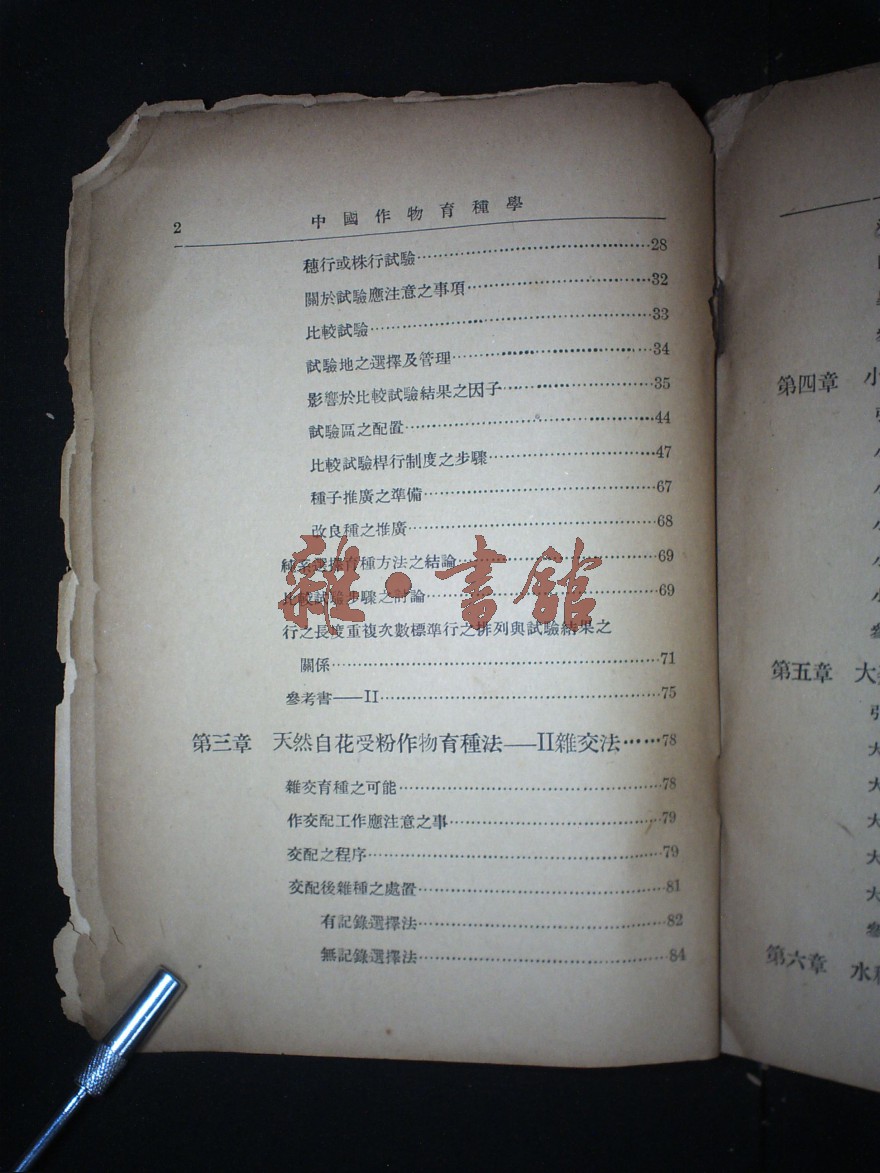 2 中國作物育種學
穗行或株行試驗……28
關於試驗應注意之事項……32
比較試驗……33
試驗地之選擇及管理……34
影響於比較試驗結果之因子……35
試驗區之配置……44
比較試驗桿行制度之步驟……47
種子推廣之準備……67
改良種之推廣……68
純系選擇育種方法之結論……69
比較試驗步驟之討論……69
行之長度重複次數標準行之排列與試驗結果之
關係……71
參考書——II……75
第三章 天然自花受粉作物育種法——II雜交法……78
雜交育種之可能……78
作交配工作應注意之事……79
交配之程序……79
交配後雜種之處置……81
有記錄選擇法……82
無記錄選擇法……84
雜·書館
第四章 小
第五章 大
第六章 水